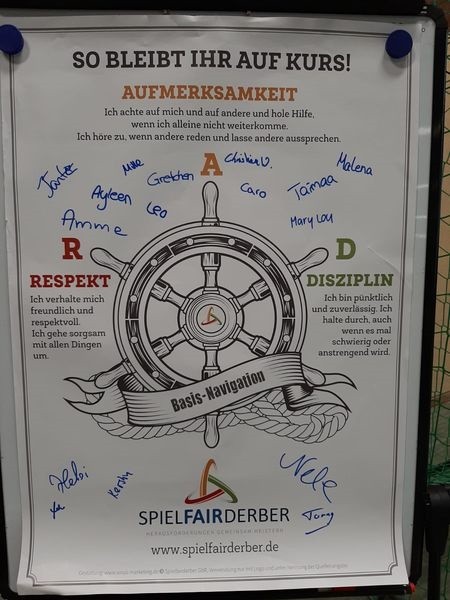 SO BLEIBT IHR AUF KURS!
AUFMERKSAMKEIT
Ich achte auf mich und auf andere und hole Hilfe,
wenn ich alleine nicht weiterkomme.
Ich höre zu, wenn andere reden und lasse andere aussprechen.
A
Gretchen
Caro
Malena
Ayleen
Leo
Taimaa
Amme
Mary Lou
R
RESPEKT
Ich verhalte mich
freundlich und
respektvoll.
Ich gehe sorgsam
mit allen Dingen
um.
D
DISZIPLIN
Ich bin pünktlich
und zuverlässig. Ich
halte durch, auch
wenn es mal
schwierig oder
anstrengend wird.
Basis-Navigation
Kerstin
Nele
SPIELFAIRDERBER
HERAUSFORDERUNGEN GEMEINSAM MEISTERN
www.spielfairderber.de